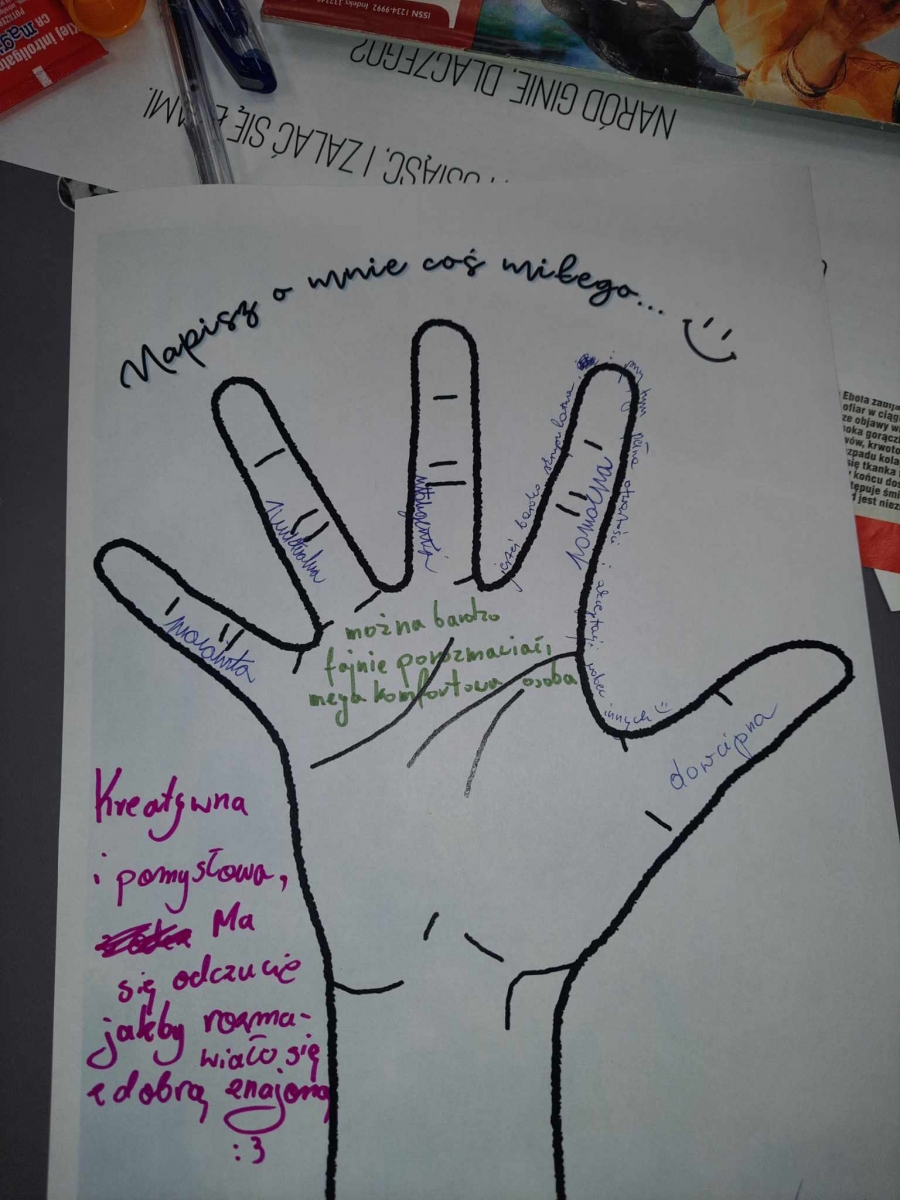 ISSN 1234-9992
NARÓD GINIE. DLACZEGO?
SIĄŚĆ. I ZALAĆ SIĘ
Napisz o mnie coś miłego...
dowcipna
pomocna
jest bardzo
pełna otwartości i akceptacji wobec
innych
inteligentna
można bardzo
fajnie porozmawiać,
mega komfortowa osoba
Kreatywna
i pomysłowa,
Ma
się odczucie
jakby rozma-
wiało się
z dobrą znajomą
:3
Ebola zabija
ofiar w ciąg
ze objawy w
soka gorącz
wów, krwoto
zpadu kola
się tkanka
końcu dos
tępuje śmi
d jest niez